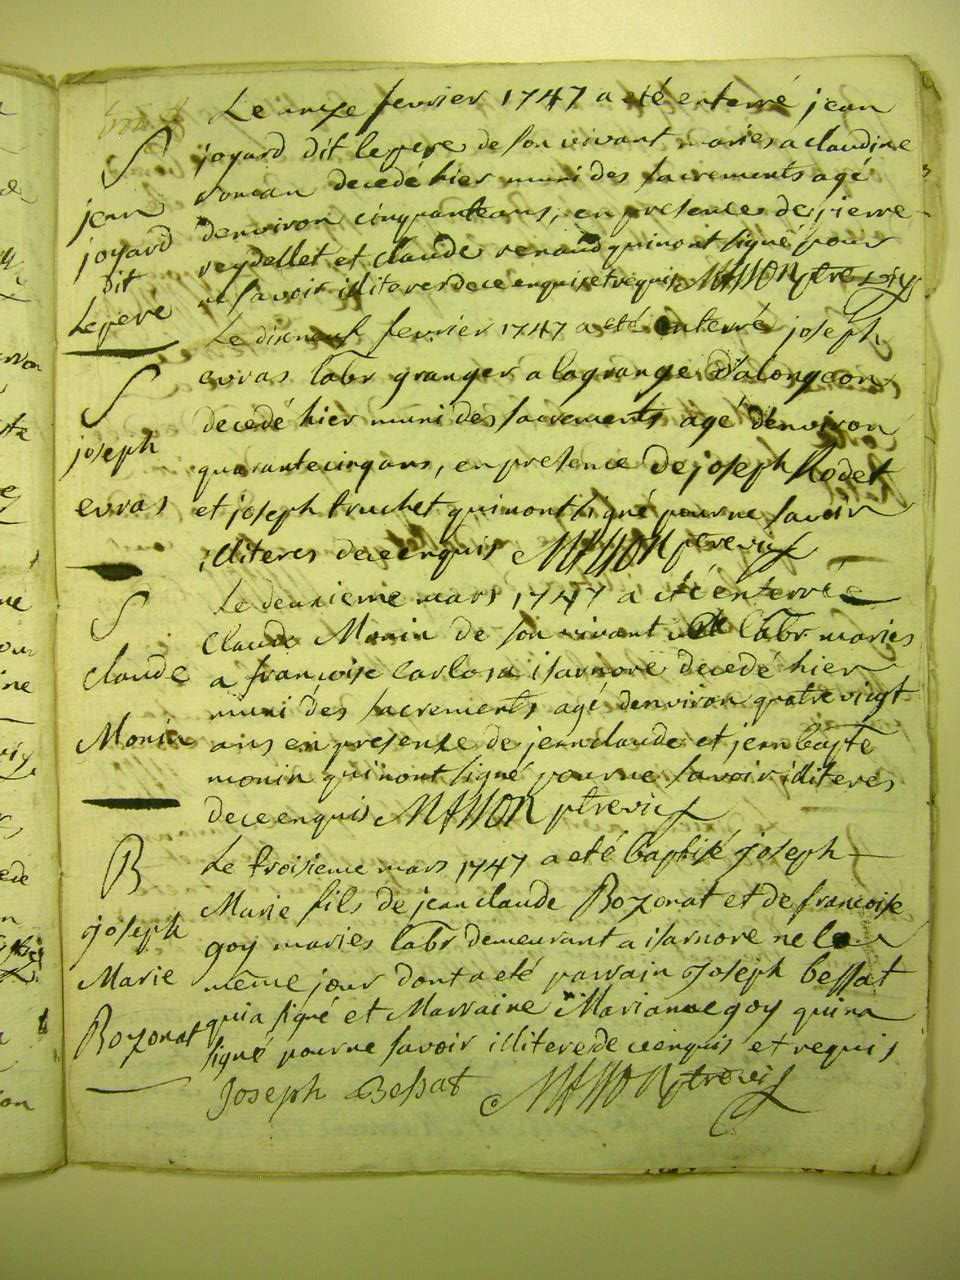 Le unze fevrier 1747 a eté enterré jean
S
joyard dit lepere de son vivant maries a claudine
jean
joyard
dit
Lepere
decedé hier muni des sacrements agé
denviron cinquante ans, en presence de pierre
reydellet et claude renaud qui nont signé pour
ne savoir illiteres de ce enquis et requis MASSON ptre vic
Le disneuf fevrier 1747 a eté enterré joseph
S
joseph
evras
evras labr granger a la grange d'alongeon
decedé hier muni des sacrements agé d'environ
quarante cinq ans, en presence de joseph Rodet
et joseph truchet qui nont signé pour ne savoir
illiteres de ce enquis MASSON ptre vic
S
claude
Monin
Le deuxieme mars 1747 a eté enterré
Claude Monin de son vivant labr maries
a françoise Carlos a isarnore decedé hier
muni des sacrements agé denviron quatre vingt
ans en presence de jean claude et jean bapte
monin qui nont signé pour ne savoir illiteres
de ce enquis MASSON ptre vic
B
joseph
Marie
Bozonat
Le troisieme mars 1747 a eté baptisé joseph
Marie fils de jean claude Bozonat et de françoise
goy maries labr demeurant a isarnore ne le
même jour dont a eté parrain joseph bessat
qui a signé et Marraine Marianne goy qui na
signé pour ne savoir illitere de ce enquis et requis
Joseph Bessat MASSON ptre vic